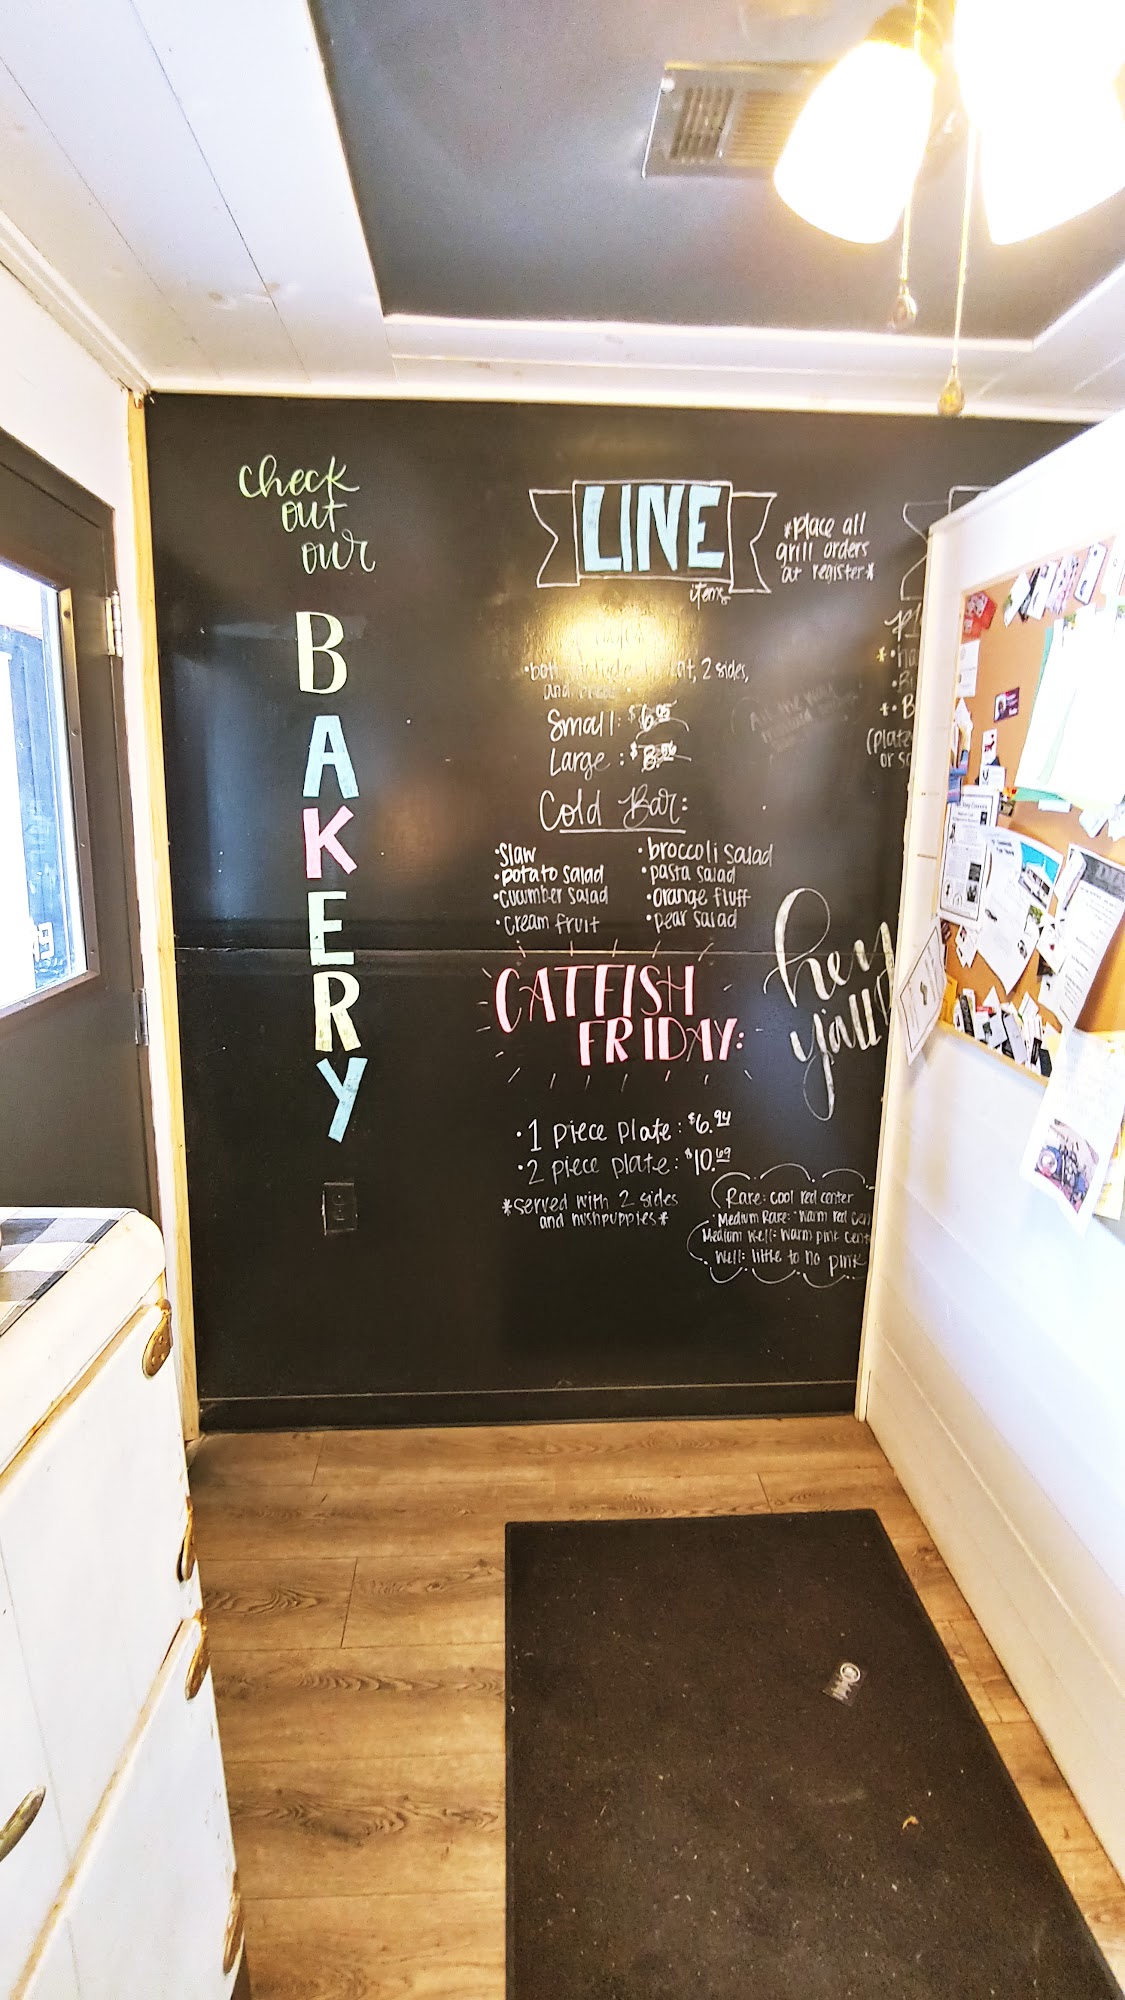 check
out
our
BAKERY
LINE
items
*Place all
grill orders
at register*
2 sides,
Small: $6.95
Large:
Cold Bar:
•Slaw
•potato salad
•cucumber salad
•cream fruit
•broccoli salad
•pasta salad
•orange fluff
•pear salad
CATFISH
FRIDAY:
•1 piece plate: $6.94
•2 piece plate: $10.69
*served with 2 sides
and hushpuppies*
hey
y'all
Rare: cool red center
Medium Rare: warm red cen
Medium Well: warm pink cent
Well: little to no pink